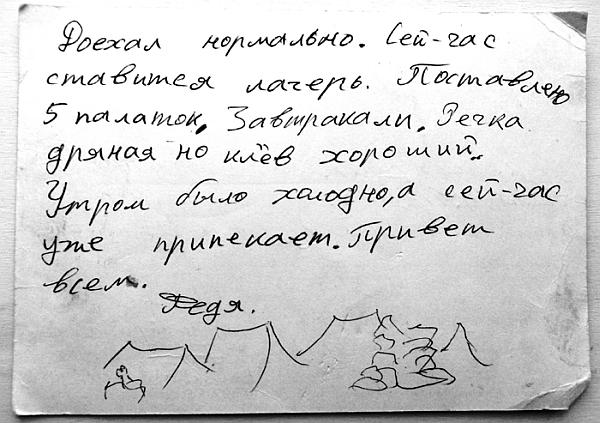 Доехал нормально. Сей-час
ставится лагерь. Поставлено
5 палаток. Завтракали. Речка
дряная но клёв хороший.
Утром было холодно, а сей-час
уже припекает. Привет
всем.
Федя.